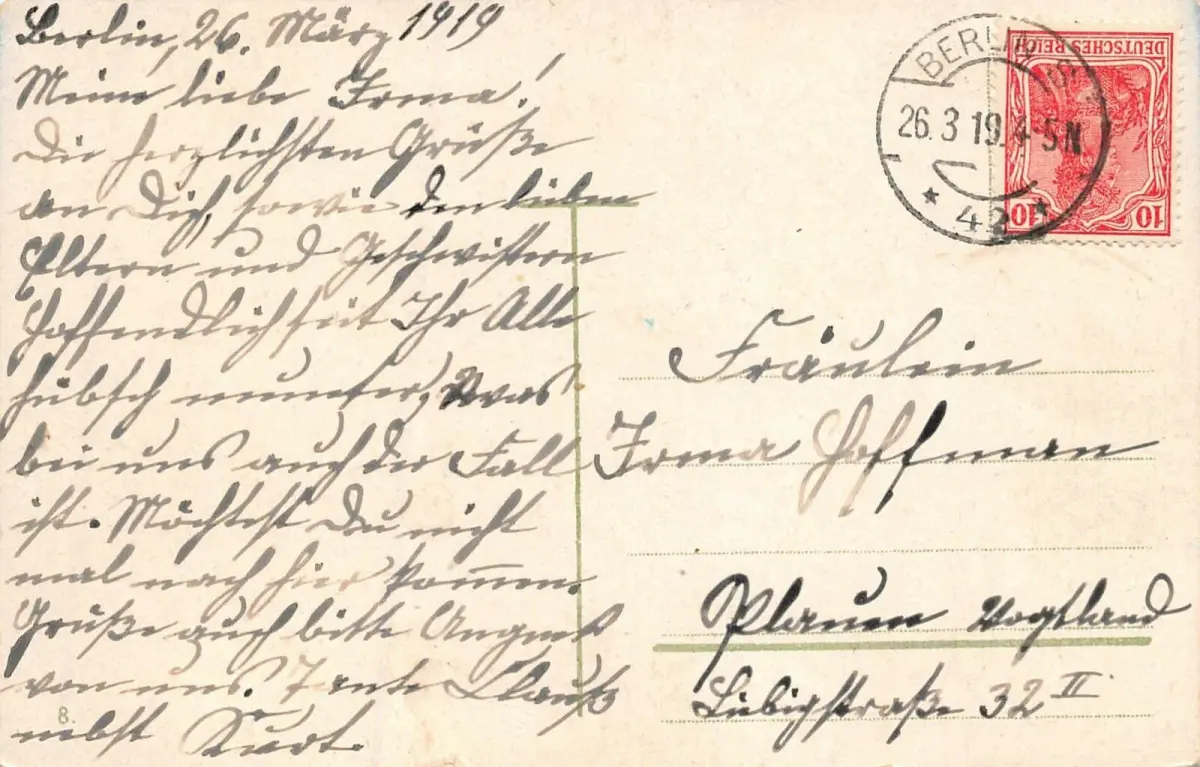 Berlin, 26. März 1919
Meine liebe Irma!
Die herzlichsten Grüße
an Dich, sowie den lieben
Eltern und Geschwistern
Hoffendlich seit Ihr Alle
hübsch munter, Was
bei uns auch der Fall
ist. Möchtest Du nicht
mal nach hier kommen.
Grüße auch bitte
von uns. Tante
nebst Kurt.
8.
BERLIN
26.3 19. 4-5N
* 42 *
DEUTSCHES REICH
10 10
Fräulein
Irma Hoffman
Plauen Vogtland
Liebigstraße 32 II